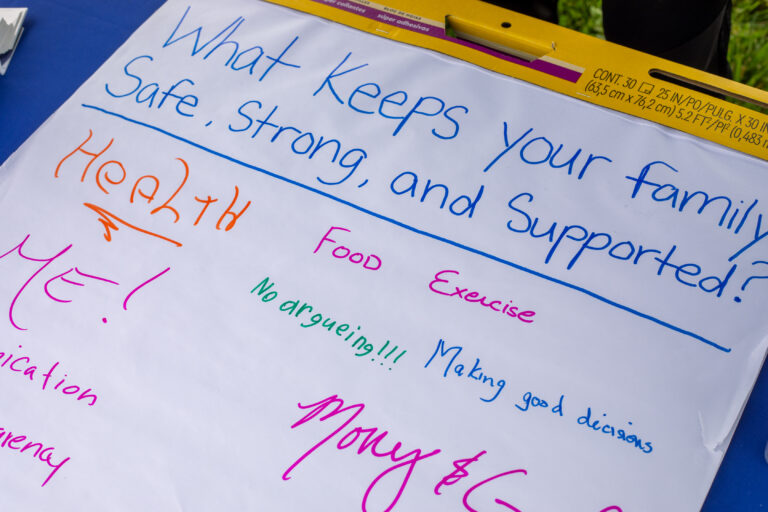 súper adhesivas
CONT. 30 25 IN/PO/PULG. X 30 IN
(63,5 cm x 76,2 cm) 5.2 FT²/PI² (0,483
What Keeps your family
Safe, Strong, and Supported?
HeALTH
Food Exercise
ME!
No argueing!!!
Making good decisions
ication
Mony &
arency